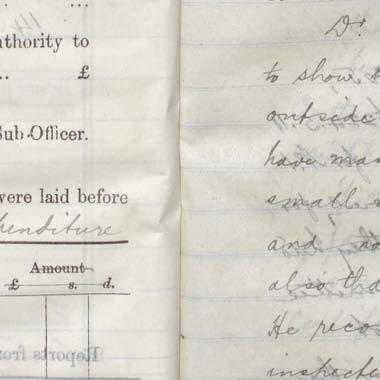 ... ...
uthority to
.. £
Sub-Officer.
were laid before
penditure
Amount
£ s. d.
Reports from
Dr
to show
outside
have ma
small
and
also tha
He reco
inspecte